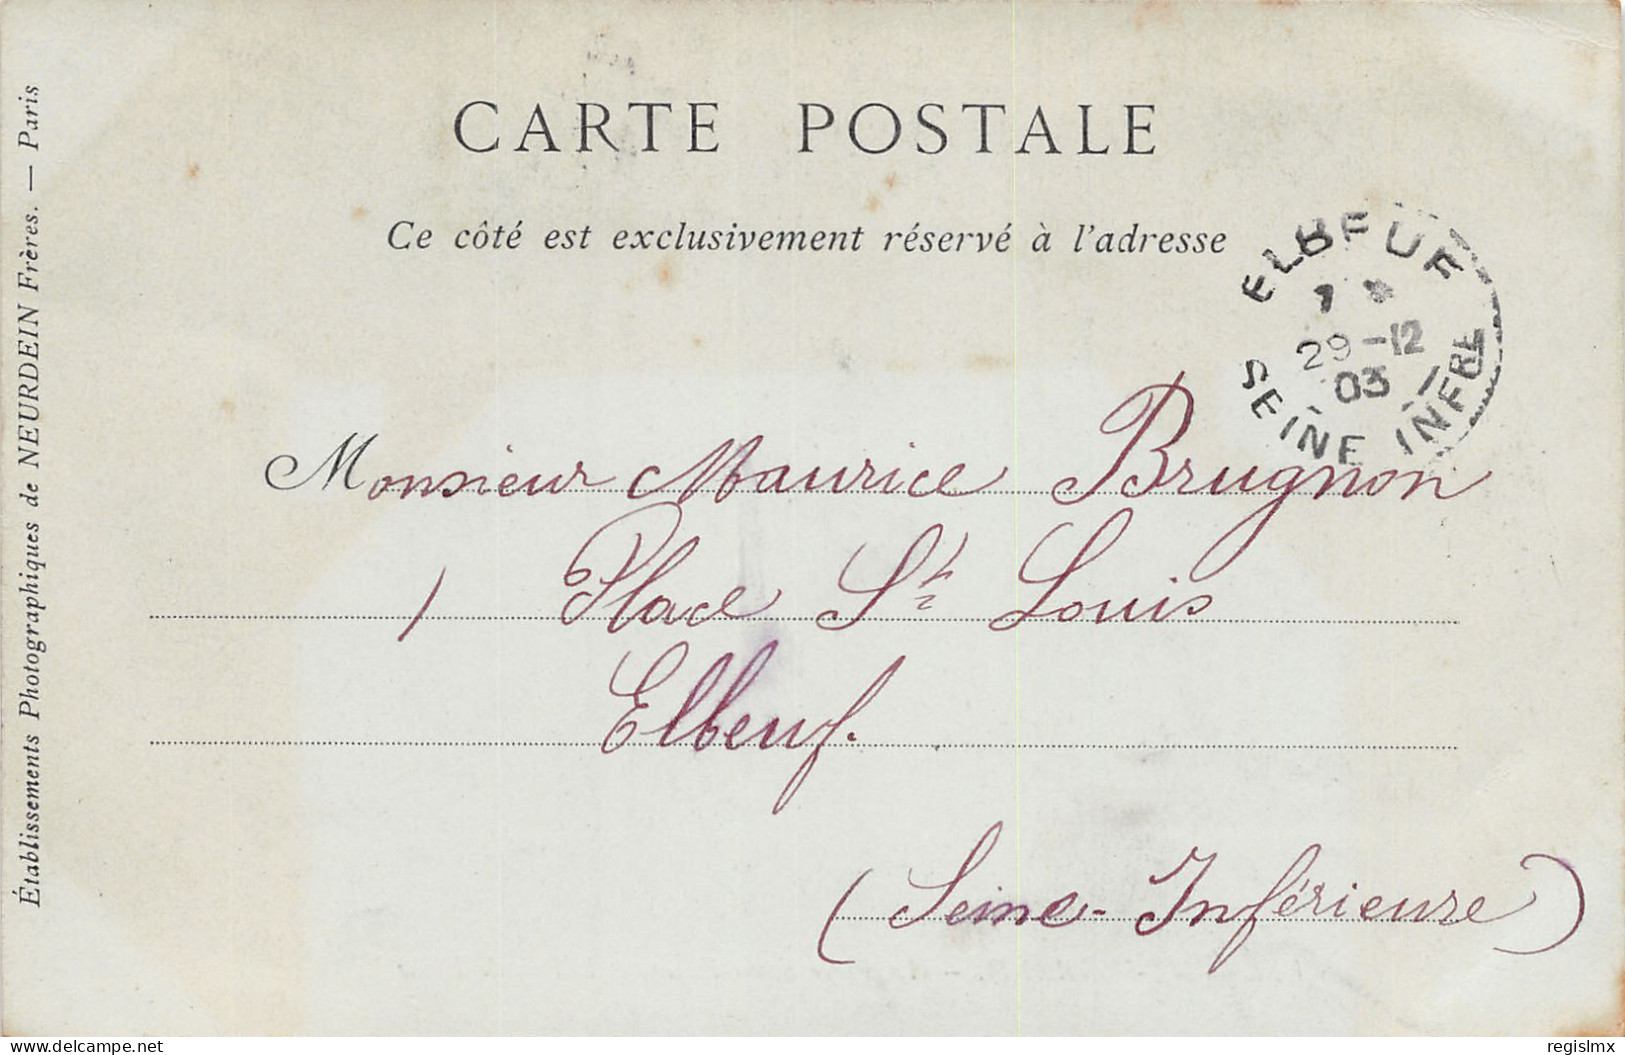 CARTE POSTALE
Ce côté est exclusivement réservé à l'adresse
Établissements Photographiques de NEURDEIN Frères. — Paris
ELBEUF
7
29-12
03
SEINE INFRE
Monsieur Maurice Brugnon
1 Place St Louis
Elbeuf.
(Seine-Inférieure)
www.delcampe.net
regislmx